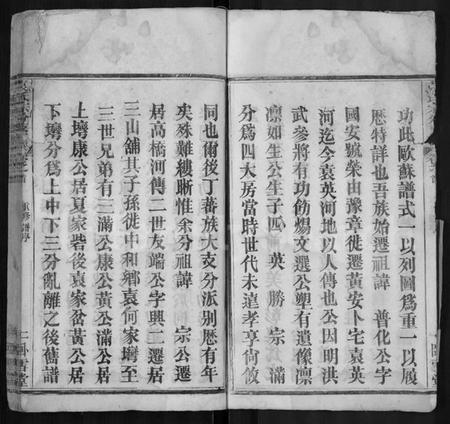 功此歐蘇譜式一以列圖爲重一以履
歷特詳也吾族始遷祖諱 普化公字
國安號榮由豫章徙遷黃安卜宅袁英
河迄今袁英河地以人傳也公因明洪
武參將有功勅賜文選公塑有遺像凛
凛如生公生子四 英 勝 宗 滿
分爲四大房當時世代未遠孝享尙攸
同也爾後丁蕃族大支分派別歷有年
矣殊難縷晰惟余分祖諱 宗公遷
居高橋河傳二世友端公字興二遷居
三山舖其子孫徙中和鄉袁何家塆至
三世兄弟有三滿公康公黃公滿公居
上塆康公居夏家砦後袁家岔黃公居
下塆分爲上中下三分亂離之後舊譜
重修譜序